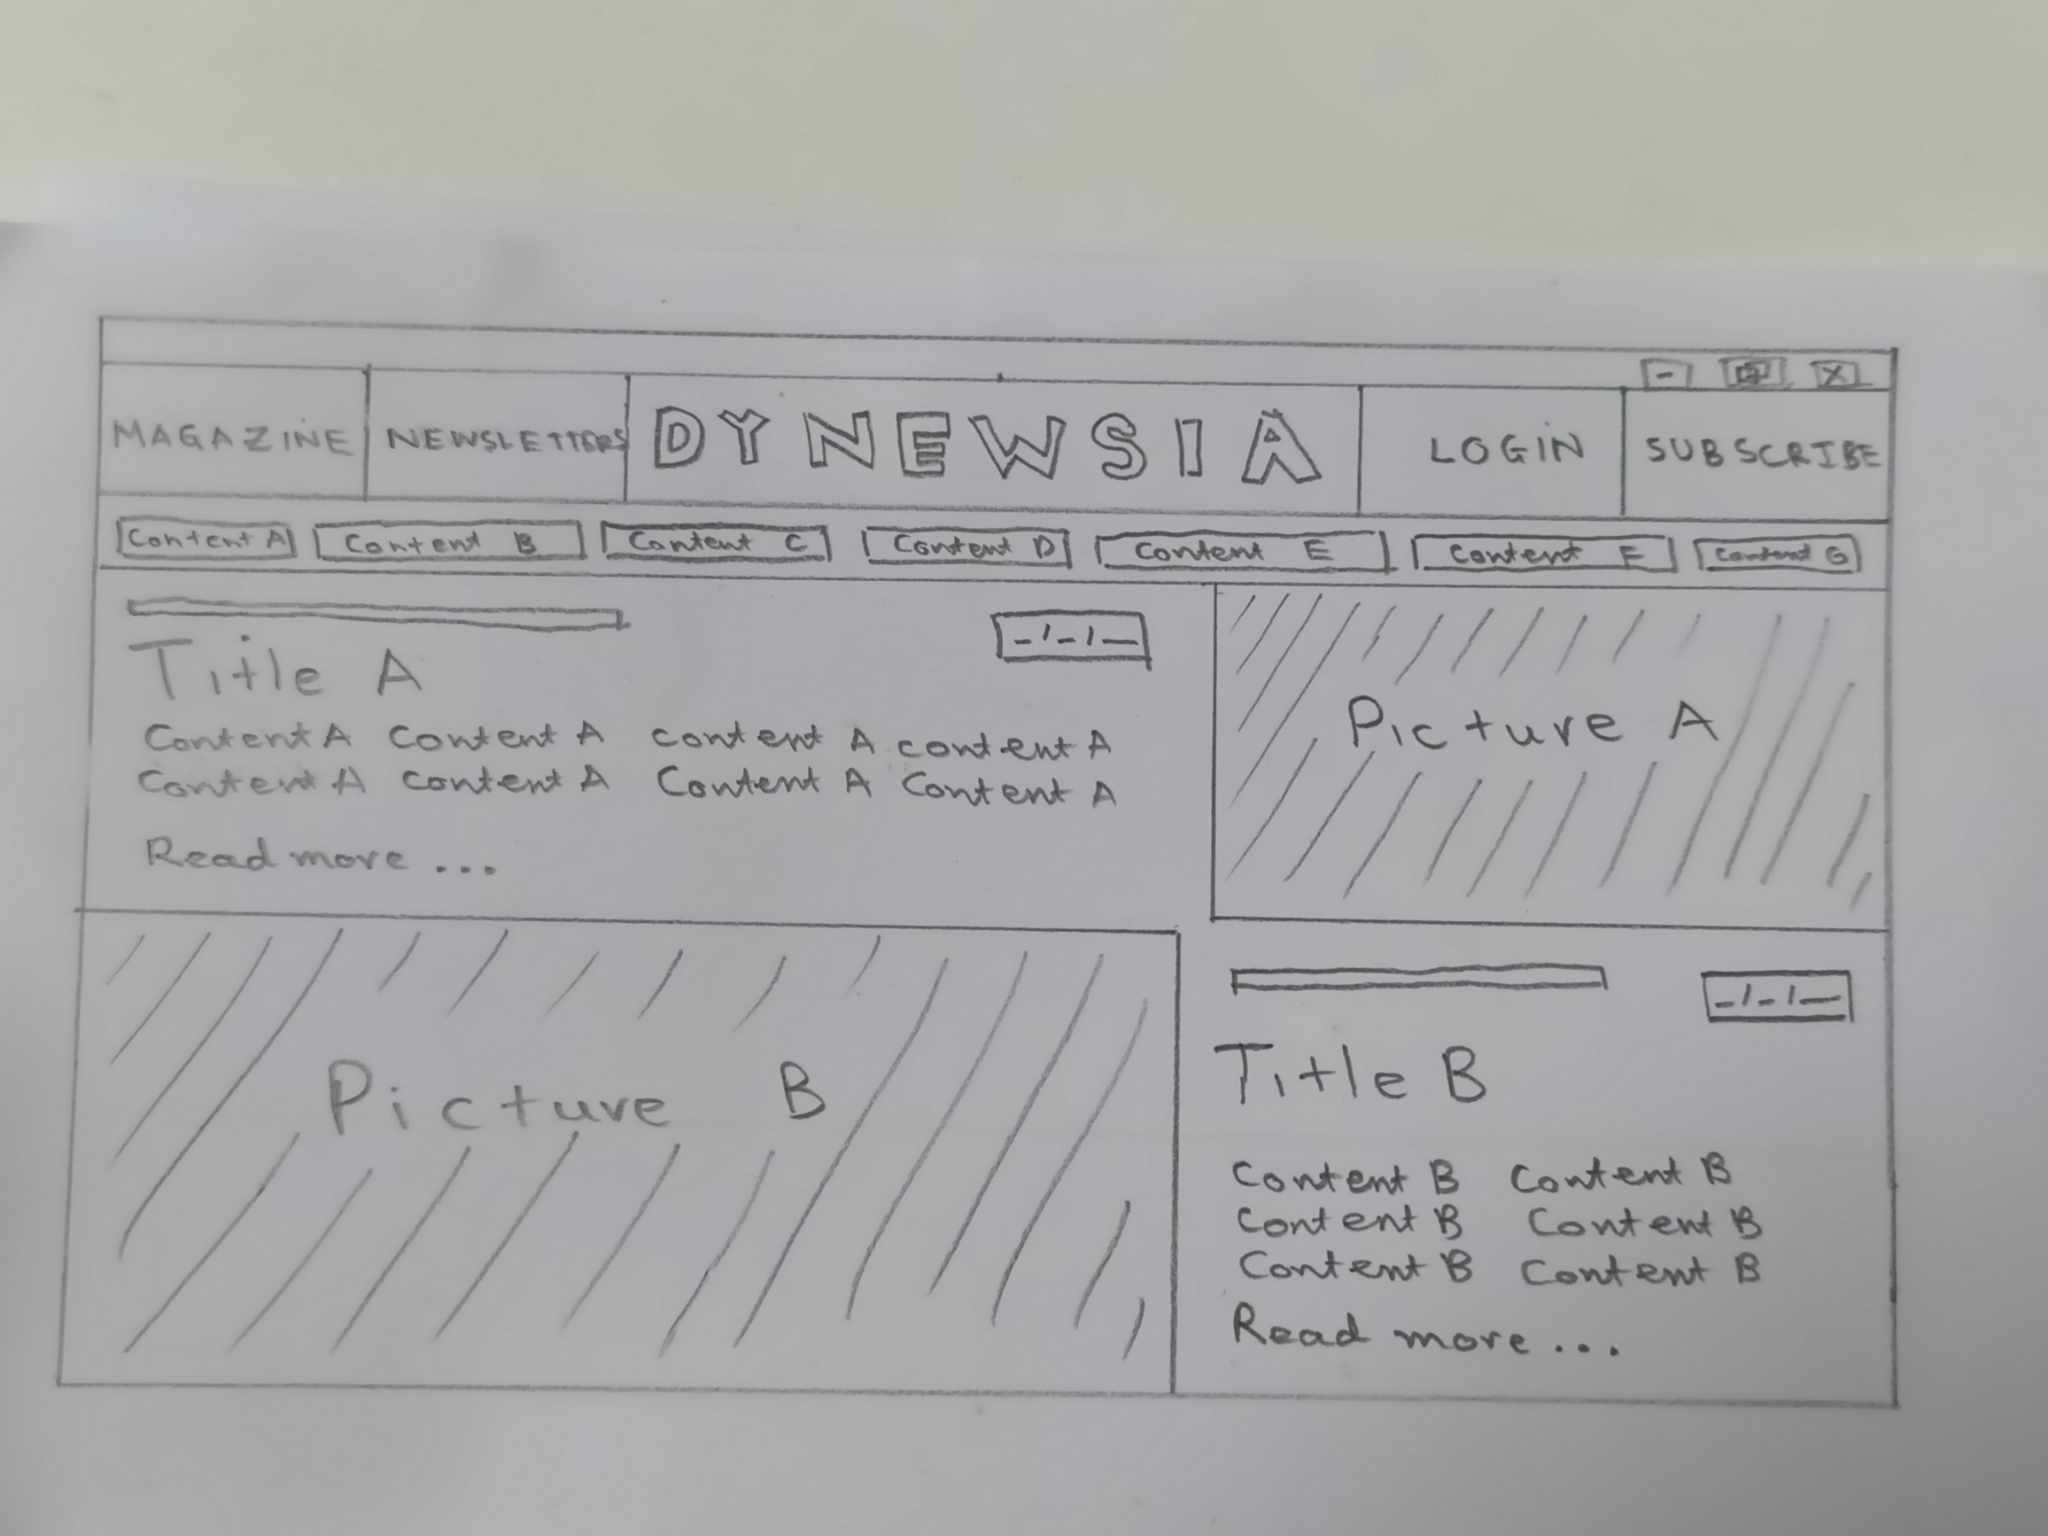 MAGAZINE NEWSLETTERS DYNEWSIA LOGIN SUBSCRIBE
Content A Content B Content C Content D Content E Content F Content G
-/-/—
Title A
Content A Content A content A content A
Content A content A Content A Content A
Read more ...
Picture A
Picture B
-/-/—
Title B
Content B Content B
Content B Content B
Content B Content B
Read more ...